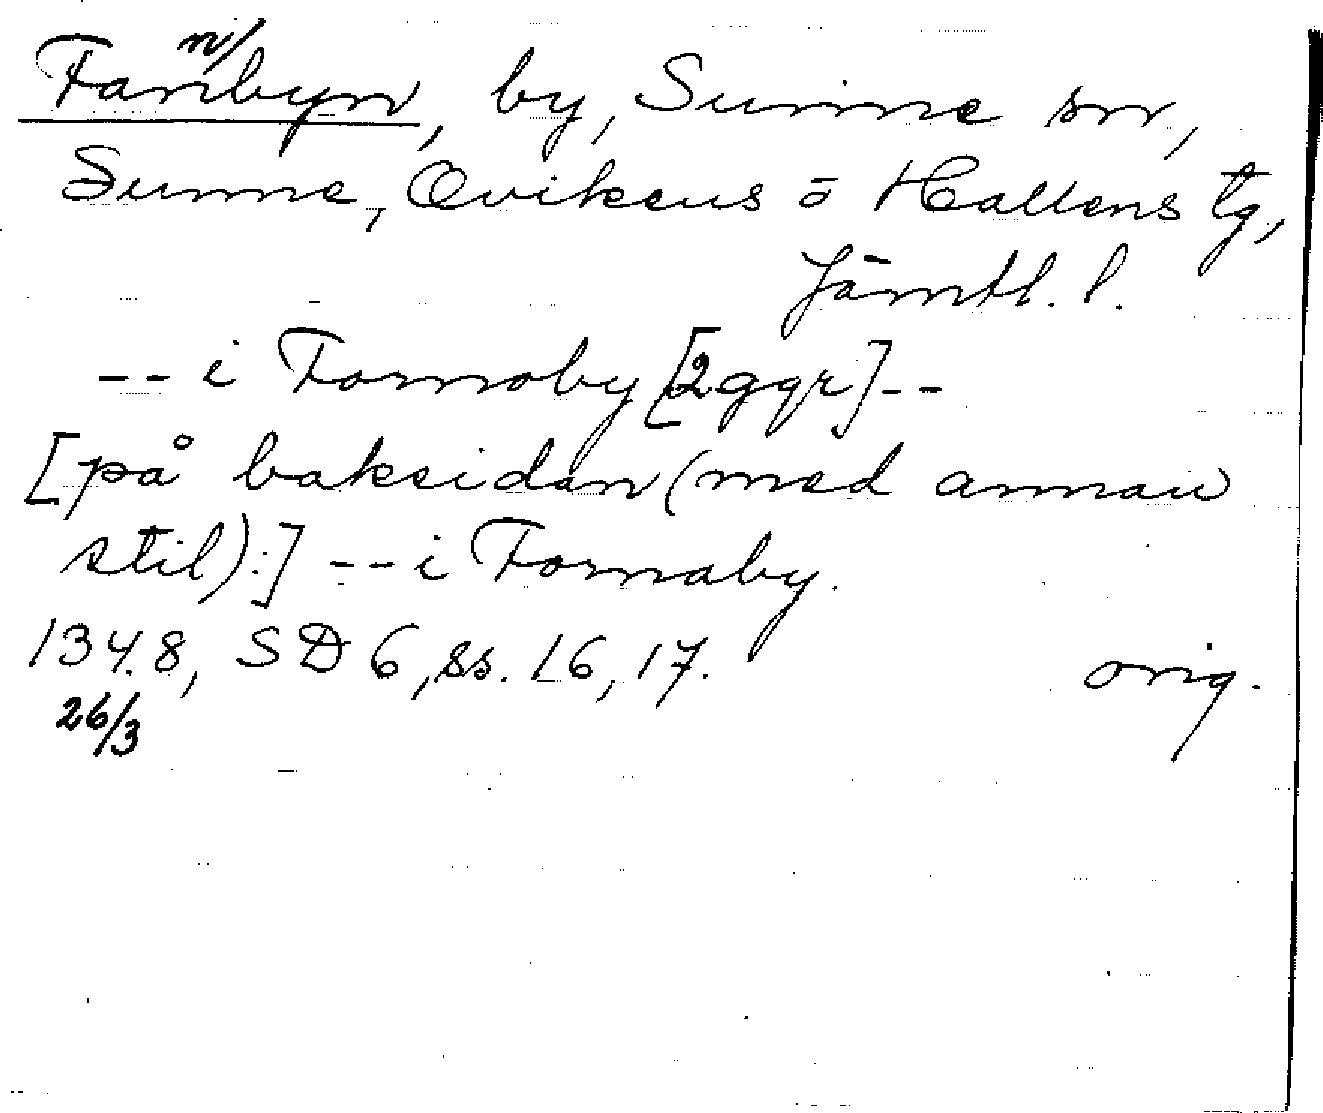 Fanbyn, by, Sunne sn,
Sunne, Ovikens o Hallens tg,
Jämtl. l.
-- i Fornoby [2 ggr] --
[på baksidan (med annan
stil):] -- i Fornaby.
1348, SD 6, ss. 16, 17. orig.
26/3